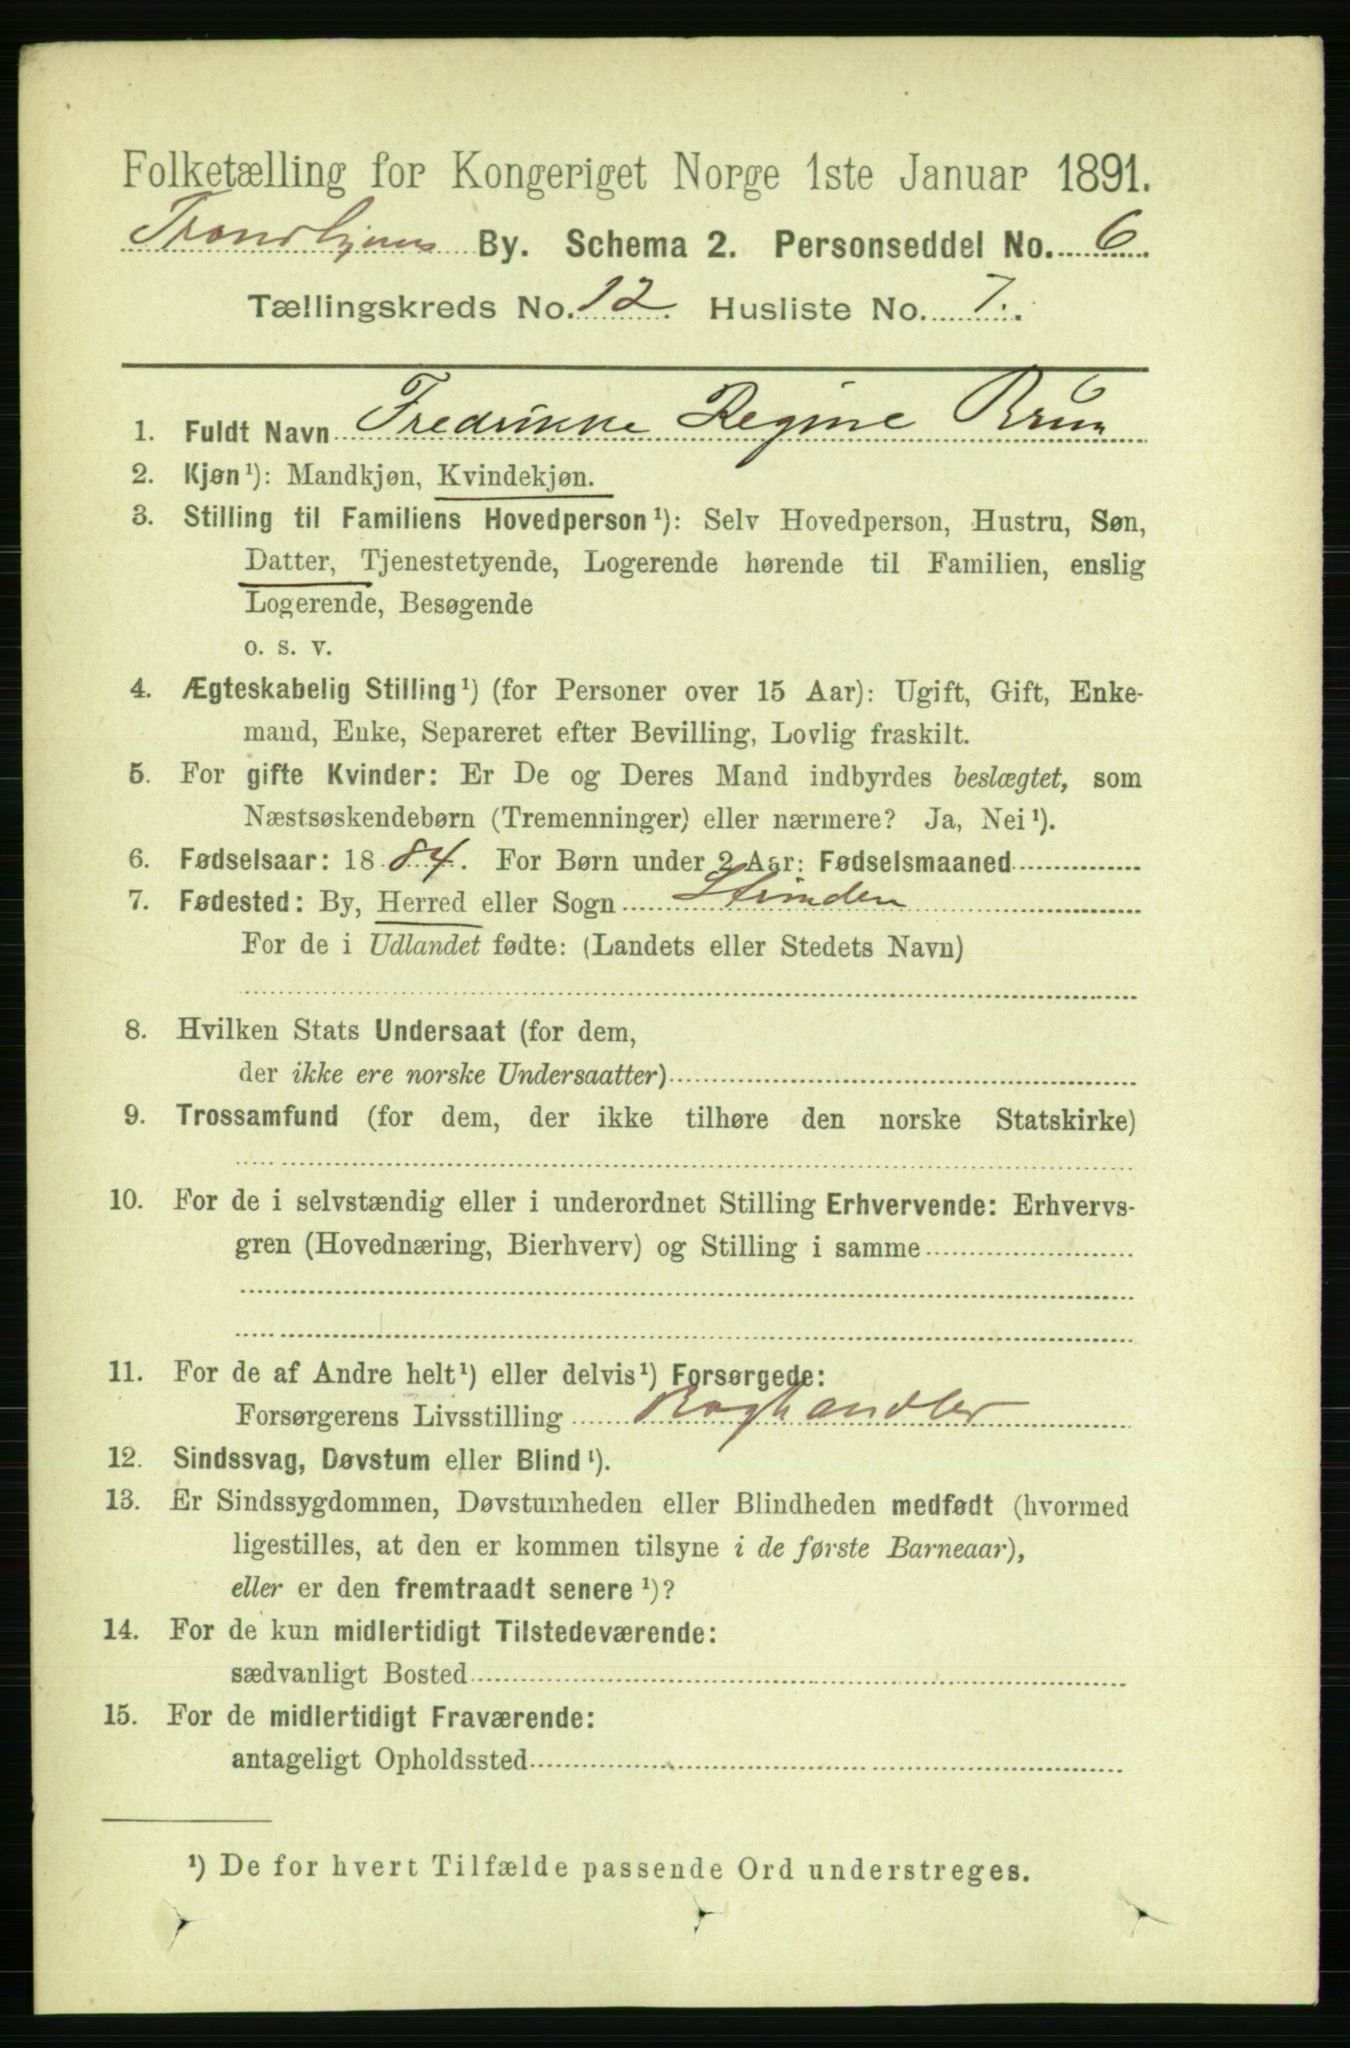 Folketælling for Kongeriget Norge 1ste Januar 1891.
Trondhjems By. Schema 2. Personseddel No. 6
Tællingskreds No. 12. Husliste No. 7.
1. Fuldt Navn Fredrikke Regine Brun
2. Kjøn¹): Mandkjøn, Kvindekjøn.
3. Stilling til Familiens Hovedperson¹): Selv Hovedperson, Hustru, Søn,
Datter, Tjenestetyende, Logerende hørende til Familien, enslig
Logerende, Besøgende
o. s. v.
4. Ægteskabelig Stilling¹) (for Personer over 15 Aar): Ugift, Gift, Enke-
mand, Enke, Separeret efter Bevilling, Lovlig fraskilt.
5. For gifte Kvinder: Er De og Deres Mand indbyrdes beslægtet, som
Næstsøskendebørn (Tremenninger) eller nærmere? Ja, Nei¹).
6. Fødselsaar: 1884. For Børn under 2 Aar: Fødselsmaaned
7. Fødested: By, Herred eller Sogn Strinden
For de i Udlandet fødte: (Landets eller Stedets Navn)
8. Hvilken Stats Undersaat (for dem,
der ikke ere norske Undersaatter)
9. Trossamfund (for dem, der ikke tilhøre den norske Statskirke)
10. For de i selvstændig eller i underordnet Stilling Erhvervende: Erhvervs-
gren (Hovednæring, Bierhverv) og Stilling i samme
11. For de af Andre helt¹) eller delvis¹) Forsørgede:
Forsørgerens Livsstilling Boghandler
12. Sindssvag, Døvstum eller Blind¹).
13. Er Sindssygdommen, Døvstumheden eller Blindheden medfødt (hvormed
ligestilles, at den er kommen tilsyne i de første Barneaar),
eller er den fremtraadt senere¹)?
14. For de kun midlertidigt Tilstedeværende:
sædvanligt Bosted
15. For de midlertidigt Fraværende:
antageligt Opholdssted
¹) De for hvert Tilfælde passende Ord understreges.